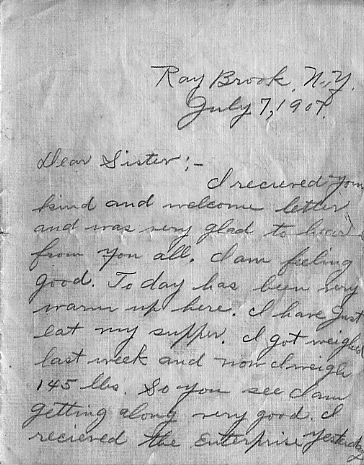 Ray Brook, N.Y.
July 7, 1907.
Dear Sister;-
I recieved your
kind and welcome letter
and was very glad to hear
from you all. I am feeling
good. To day has been very
warm up here. I have just
eat my supper. I got weighed
last week and now I weigh
145 lbs. So you see I am
getting along very good. I
recieved the Enterprise yesterday